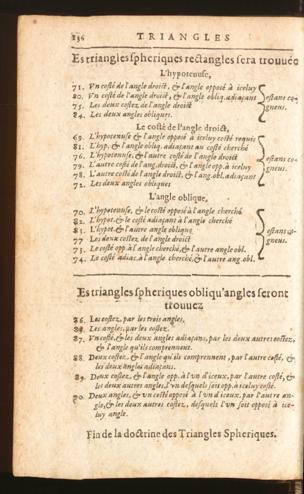 136 TRIANGLES
Es triangles spheriques rectangles sera trouvée
L'hypotenuse,
71. Vn costé de l'angle droict, & l'angle opposé à iceluy
80. Vn costé de l'angle droict, & l'angle obliq. adiaçant
75. Les deux costez de l'angle droict
84. Les deux angles obliques.
estans co-
gneus.
Le costé de l'angle droict,
69. L'hypotenuse & l'angle opposé à iceluy costé requis
81. L'hyp. & l'angle obliq. adiaçant au costé cherché
76. L'hypotenuse, & l'autre costé de l'angle droict
79. L'autre costé de l'ang. droict, & l'angle opp. à iceluy
78. L'autre costé de l'angle droict, & l'ang. obl. adiaçant
72. Les deux angles obliques
estans co-
gneus.
L'angle oblique,
70. L'hypotenuse, & le costé opposé à l'angle cherché
82. L'hypot. & le costé adiaçant à l'angle cherché
83. L'hypot. & l'autre angle oblique
77 Les deux costez de l'angle droict
73. Le costé opp. à l'angle cherché, & l'autre angle obl.
74. Le costé adiac. à l'angle cherché, & l'autre ang. obl.
estans co-
gneus.
Es triangles spheriques obliqu'angles seront
trouvez
86. Les costez, par les trois angles,
Les angles, par les costez.
87. Vn costé, & les deux angles adiaçans, par les deux autres costez,
& l'angle qu'ils comprennent.
88. Deux costez, & l'angle qu'ils comprennent, par l'autre costé, &
les deux angles adiaçans.
89. Deux costez, & l'angle opp. à l'vn d'iceux, par l'autre costé, &
les deux autres angles, l'vn desquels soit opp. à iceluy costé.
90. Deux angles, & vn costé opposé à l'vn d'iceux, par l'autre an-
gle, & les deux autres costez, desquels l'vn soit opposé à ice-
luy angle.
Fin de la doctrine des Triangles Spheriques.